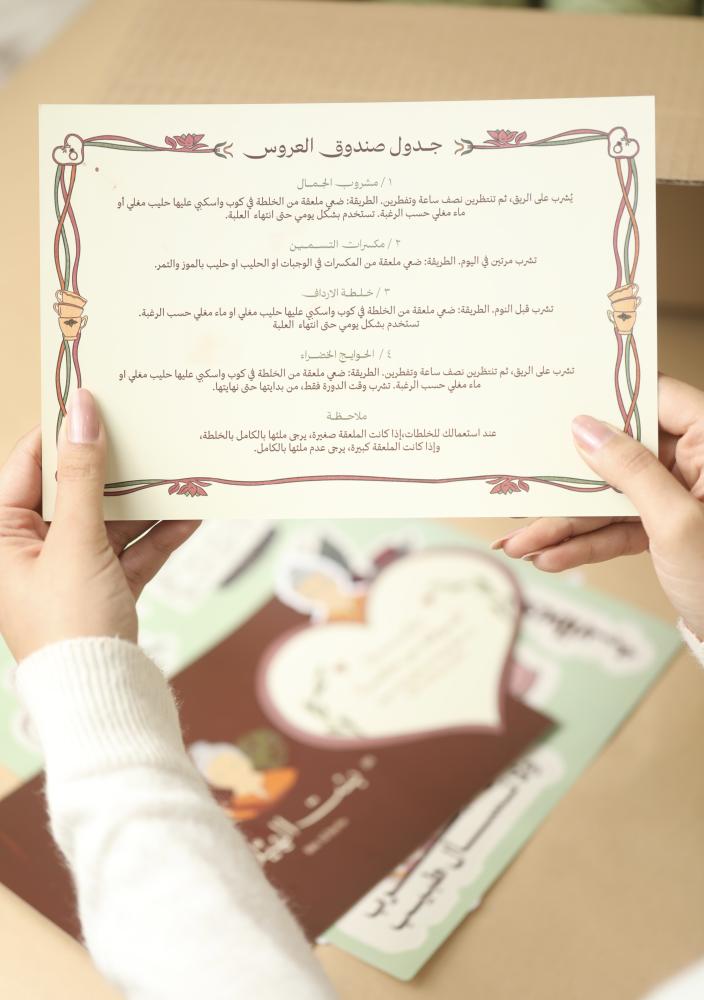 جدول صندوق العروس
١ / مشروب الجمال
يُشرب على الريق، ثم تنتظرين نصف ساعة وتفطرين. الطريقة: ضعي ملعقة من الخلطة في كوب واسكبي عليها حليب مغلي أو
ماء مغلي حسب الرغبة. تستخدم بشكل يومي حتى انتهاء العلبة.
٢ / مكسرات التسمين
تشرب مرتين في اليوم. الطريقة: ضعي ملعقة من المكسرات في الوجبات او الحليب او حليب بالموز والتمر.
٣ / خلطة الارداف
تشرب قبل النوم. الطريقة: ضعي ملعقة من الخلطة في كوب واسكبي عليها حليب مغلي او ماء مغلي حسب الرغبة.
تستخدم بشكل يومي حتى انتهاء العلبة
٤ / الحوايج الخضراء
تشرب على الريق، ثم تنتظرين نصف ساعة وتفطرين. الطريقة: ضعي ملعقة من الخلطة في كوب واسكبي عليها حليب مغلي او
ماء مغلي حسب الرغبة. تشرب وقت الدورة فقط، من بدايتها حتى نهايتها.
ملاحظة
عند استعمالك للخلطات،إذا كانت الملعقة صغيرة، يرجى ملئها بالكامل بالخلطة،
وإذا كانت الملعقة كبيرة، يرجى عدم ملئها بالكامل.
بنت